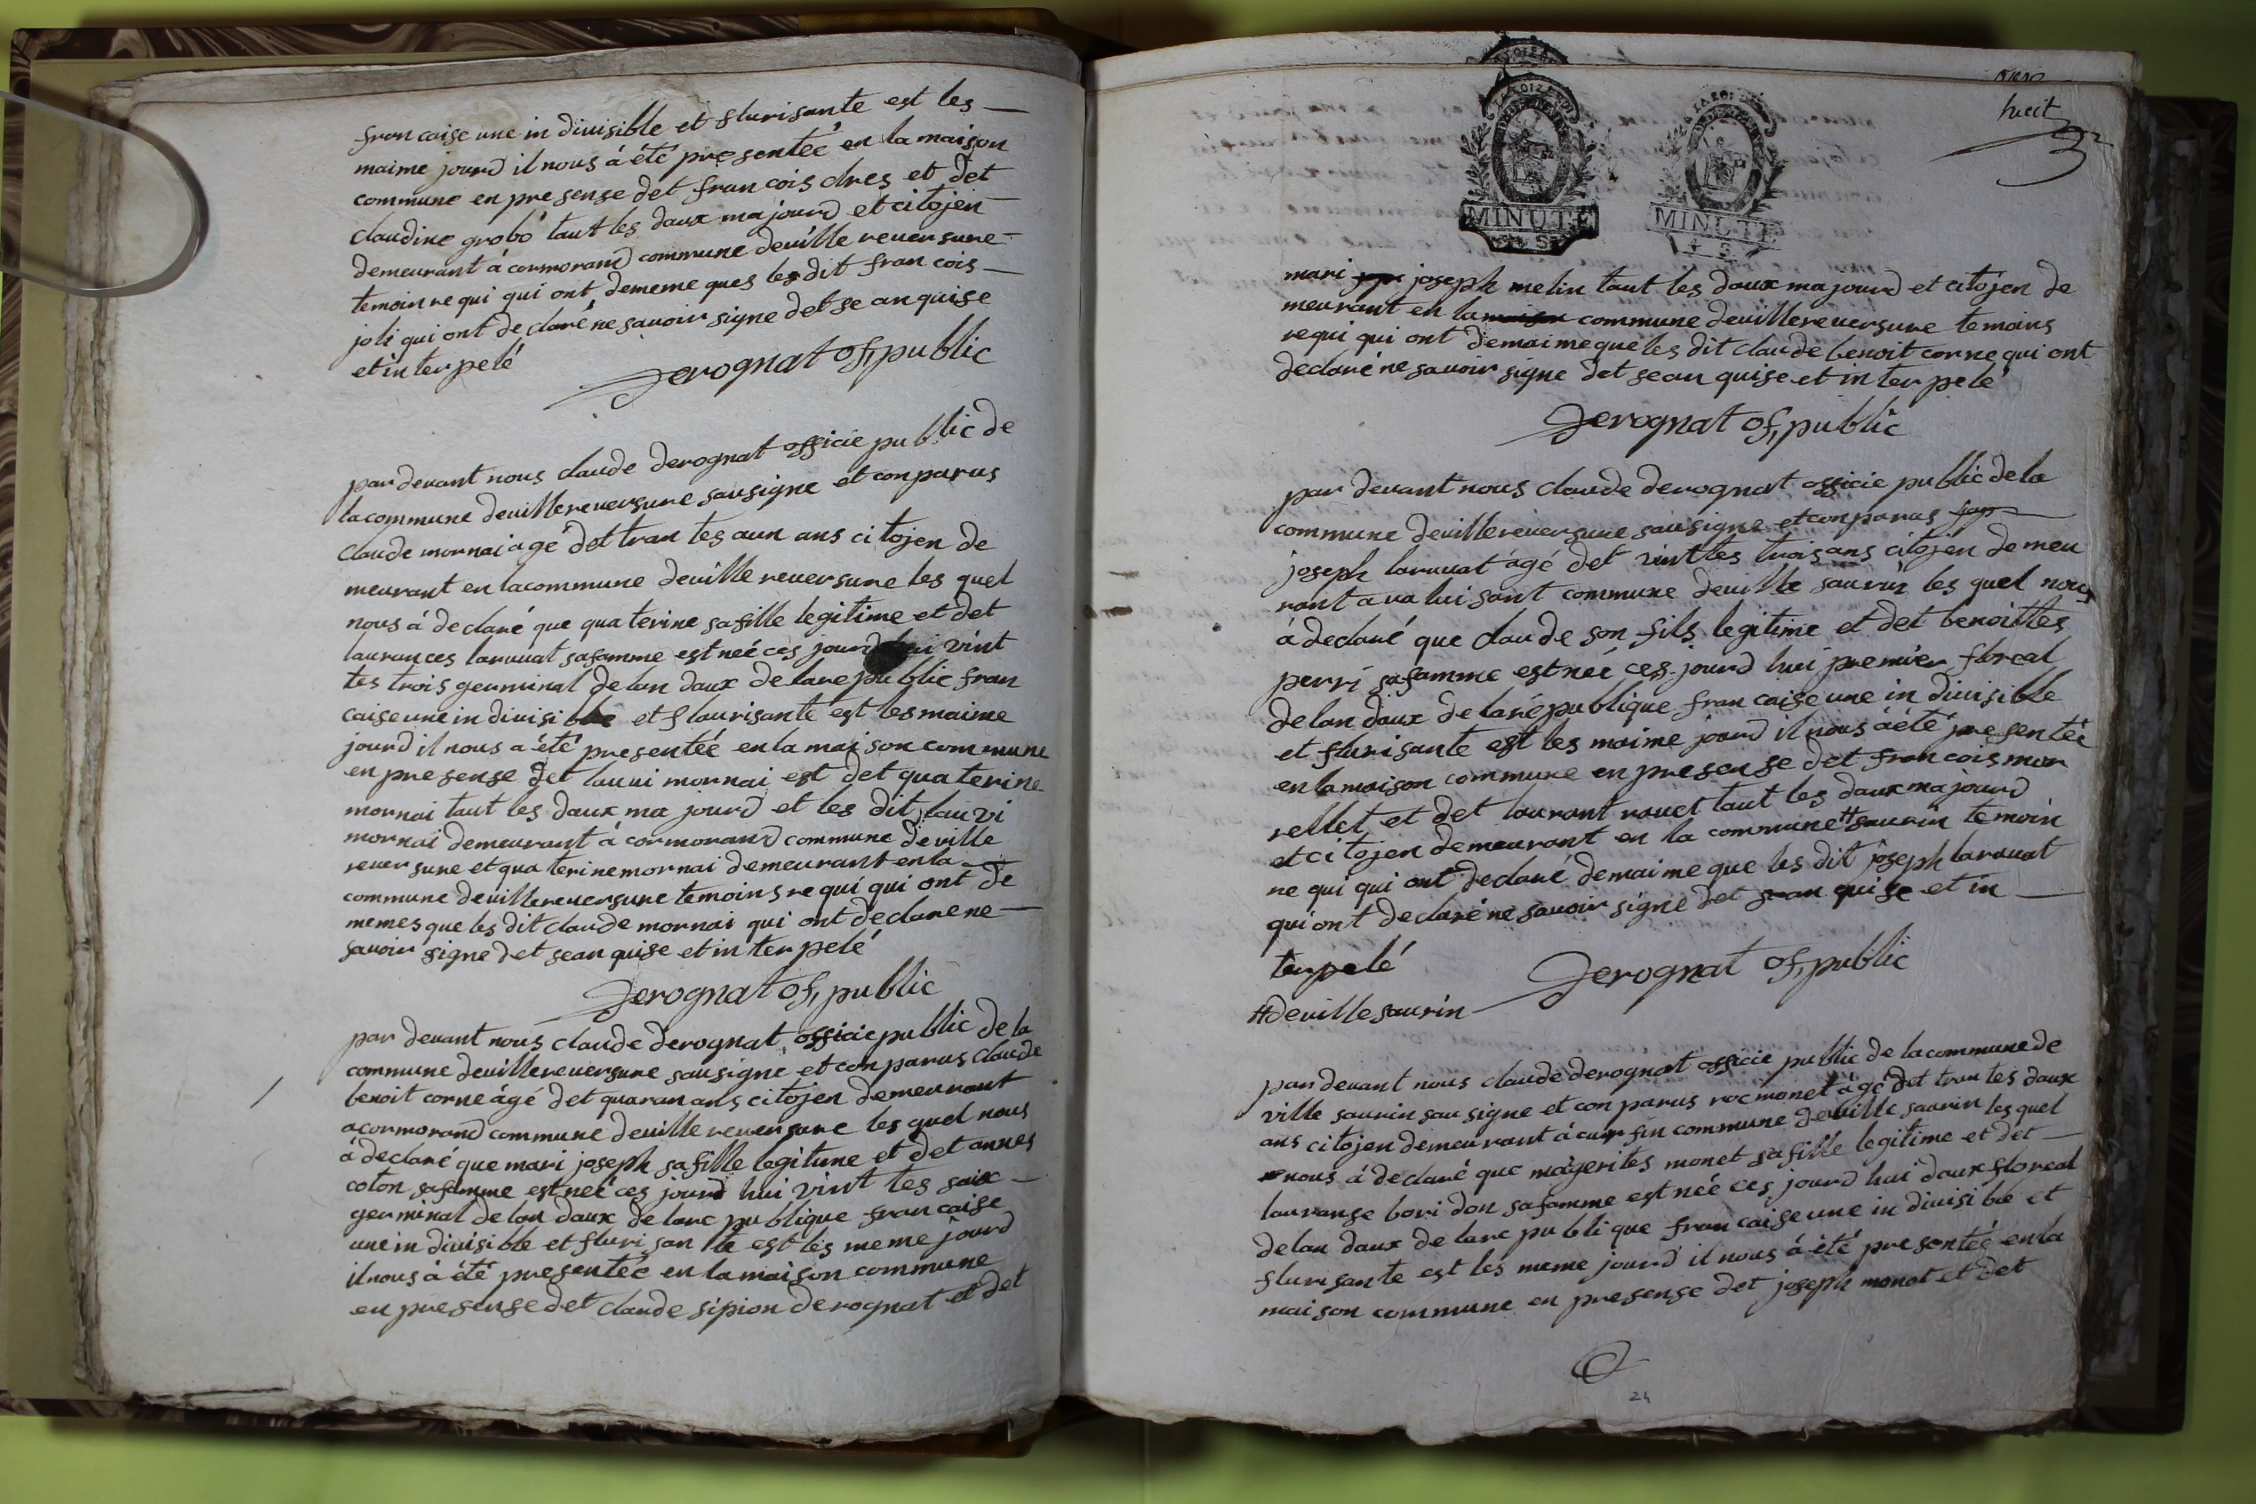 francaise une in diuisible et flurisante est les
maime jourd il nous á été presentéé en la maison
commune en presense det francois dres et det
claudine grobo taut les daux majourd et citojen
demeurant á cormorand commune deuille reuersure
temoin requi qui ont dememe ques les dit francois
joli qui ont declaré ne sauoir signe det se anquise
et in terpelé
Derognat of, public
par deuant nous claude derognat officie public de
la commune deuillereuersure sausigne et conparus
claude mornai agé det tran tes aun ans citojen de
meurant en lacommune deuille reuersure les quel
nous á declaré que quaterine safille legitime et det
laurances laruuat safamme est neé ces jourd hui vint
tes trois germinal delan daux de lare public fran
caise une in diuisible et flaurisante est les maime
jourd il nous a été presentéé en la maison commune
en presense det lauui mornai est det quaterine
mornai taut les daux ma jourd et les dit lauvi
mornai demeurant á cormorand commune deville
reuersure et quaterine mornai demeurant en la
commune deuillereuersure temoins requi qui ont de
memes que les dit claude mornai qui ont declare ne
savoir signe det sean quise et in terpelé
Derognat of, public
par deuant nous claude derognat officie public de la
commune deuillereuersure sausigne et conparus claude
benoit corne ágé det quaran ans citojen demeurant
a cormorand commune deuille reuersure les quel nous
á declaré que mari joseph safille legitime et det annes
coton safamme est neé ces jourd hui vint tes saix
germinal delan daux de lare publique francaise
une in diuisible et fluri san te est les meme jourd
il nous á été presentéé en la maison commune
en presense det claude sipion derognat et det
huit
MINUTE
MINUTE
mari joseph melin taut les daux majourd et citojen de
meurant en la commune deuillereuersure temoins
requi qui ont demaime que les dit claude benoit corne qui ont
declaré ne sauoir signe det sean quise et in terpelé
Derognat of, public
par deuant nous claude derognat officie public de la
commune deuillereuersure sausigne et conparus
joseph laruuat ágé det vint tes trois ans citojen demeu
rant a valuisant commune deuille saurin les quel nous
á declaré que claude son fils legitime et det benoittes
perri safamme est neé ces jourd hui premier floreal
delan daux de laré publique francaise une in diuisible
et flurisante est les maime jourd il nous á été presentéé
en la maison commune en presense det francois mor
rellet et det laurant rauet taut les daux majourd
et citojen demeurant en la commune # saurin temoin
re qui qui ont declaré demaime que les dit joseph laruuat
qui ont declaré ne savoir signé det sean quise et in
terpelé
Derognat of, public
# deuille saurin
par deuant nous claude derognat officie public de la commune de
ville saurin sau signe et con parus roc monet ágé det tran tes daux
ans citojen demeurant á commune deuille saurin les quel
nous á declaré que magerites monet safille legitime et det
lauranse boridon safamme est néé ces jourd hui daux floreal
delan daux de lare publique francaise une in diuisible et
flurisante est les meme jourd il nous á été presentéé en la
maison commune en presense det joseph monet et det
24